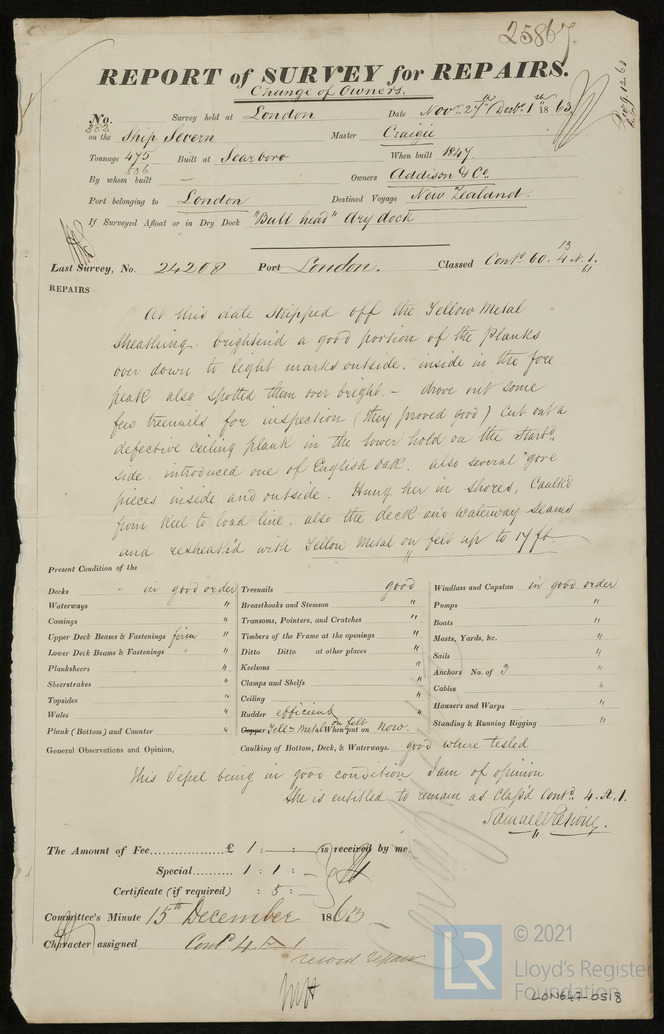 25867
REPORT of SURVEY for REPAIRS.
Change of Owners.
No. 882 Survey held at London Date Novr 27th Decbr 1st 1863
on the Ship Severn Master Craigie
Tonnage 475 Built at Scarboro When built 1847
536
By whom built — Owners Addison & Co
Port belonging to London Destined Voyage New Zealand.
If Surveyed Afloat or in Dry Dock "Bull head" dry dock
Last Survey, No. 24208 Port London. Classed Contd 60. 13 4 A. 1.
REPAIRS
At this date stripped off the Yellow Metal
Sheathing. brighten'd a good portion of the Planks
over down to light marks outside. inside in the fore
peak also spotted them over bright. — drove out some
few treenails for inspection (they proved good) Cut out a
defective ceiling plank in the lower hold on the Starbd
side. introduced one of English Oak. also several gore
pieces inside and outside. Hung her in shores, Caulk'd
from Keel to load line. also the deck and Waterway Seams
and resheath'd with Yellow Metal on felt up to 17 ft.
Present Condition of the
Decks in good order Treenails good Windlass and Capstan in good order
Waterways " Breasthooks and Stemson " Pumps "
Comings " Transoms, Pointers, and Crutches " Boats "
Upper Deck Beams & Fastenings firm " Timbers of the Frame at the openings " Masts, Yards, &c. "
Lower Deck Beams & Fastenings " Ditto Ditto at other places " Sails "
Planksheers " Keelsons " Anchors No. of 3 "
Sheerstrakes " Clamps and Shelfs " Cables "
Topsides " Ceiling " Hawsers and Warps "
Wales " Rudder efficient Standing & Running Rigging "
Plank (Bottom) and Counter " Copper Yellw Metal on felt When put on Now.
General Observations and Opinion, Caulking of Bottom, Deck, & Waterways. good where tested
This Vessel being in good condition I am of opinion
She is entitled to remain as Class'd Contd. 4. A. 1.
The Amount of Fee £ 1 : — : — is received by me,
Special 1 : 1 : —
Certificate (if required) : 5 : —
Committee's Minute 15th December 1863
Character assigned Contd 4 A 1
record repairs
© 2021
LR
Lloyd's Register
Foundation
LON647-0518